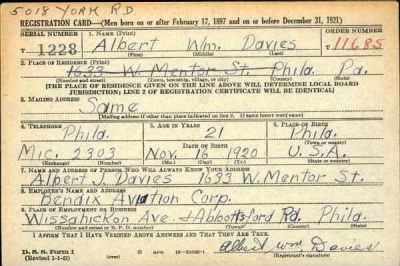 5018 YORK RD
REGISTRATION CARD—(Men born on or after February 17, 1897 and on or before December 31, 1921)
SERIAL NUMBER 1. NAME (Print) ORDER NUMBER
T 1228 Albert Wm. Davies T 11685
(First) (Middle) (Last)
2. PLACE OF RESIDENCE (Print)
1633 W. Mentor St. Phila. Pa.
(Number and street) (Town, township, village, or city) (County) (State)
[THE PLACE OF RESIDENCE GIVEN ON THE LINE ABOVE WILL DETERMINE LOCAL BOARD
JURISDICTION; LINE 2 OF REGISTRATION CERTIFICATE WILL BE IDENTICAL]
3. MAILING ADDRESS
Same
[Mailing address if other than place indicated on line 2. If same insert word same]
4. TELEPHONE 5. AGE IN YEARS 6. PLACE OF BIRTH
Phila. 21 Phila.
DATE OF BIRTH (Town or county)
Mic. 2303 Nov. 16 1920 U.S.A.
(Exchange) (Number) (Mo.) (Day) (Yr.) (State or country)
7. NAME AND ADDRESS OF PERSON WHO WILL ALWAYS KNOW YOUR ADDRESS
Albert J. Davies 1633 W. Mentor St.
8. EMPLOYER'S NAME AND ADDRESS
Bendix Aviation Corp.
9. PLACE OF EMPLOYMENT OR BUSINESS
Wissahickon Ave. + Abbottsford Rd. Phila.
(Number and street or R. F. D. number) (Town) (County) (State)
I AFFIRM THAT I HAVE VERIFIED ABOVE ANSWERS AND THAT THEY ARE TRUE.
D. S. S. Form 1 Albert Wm Davies